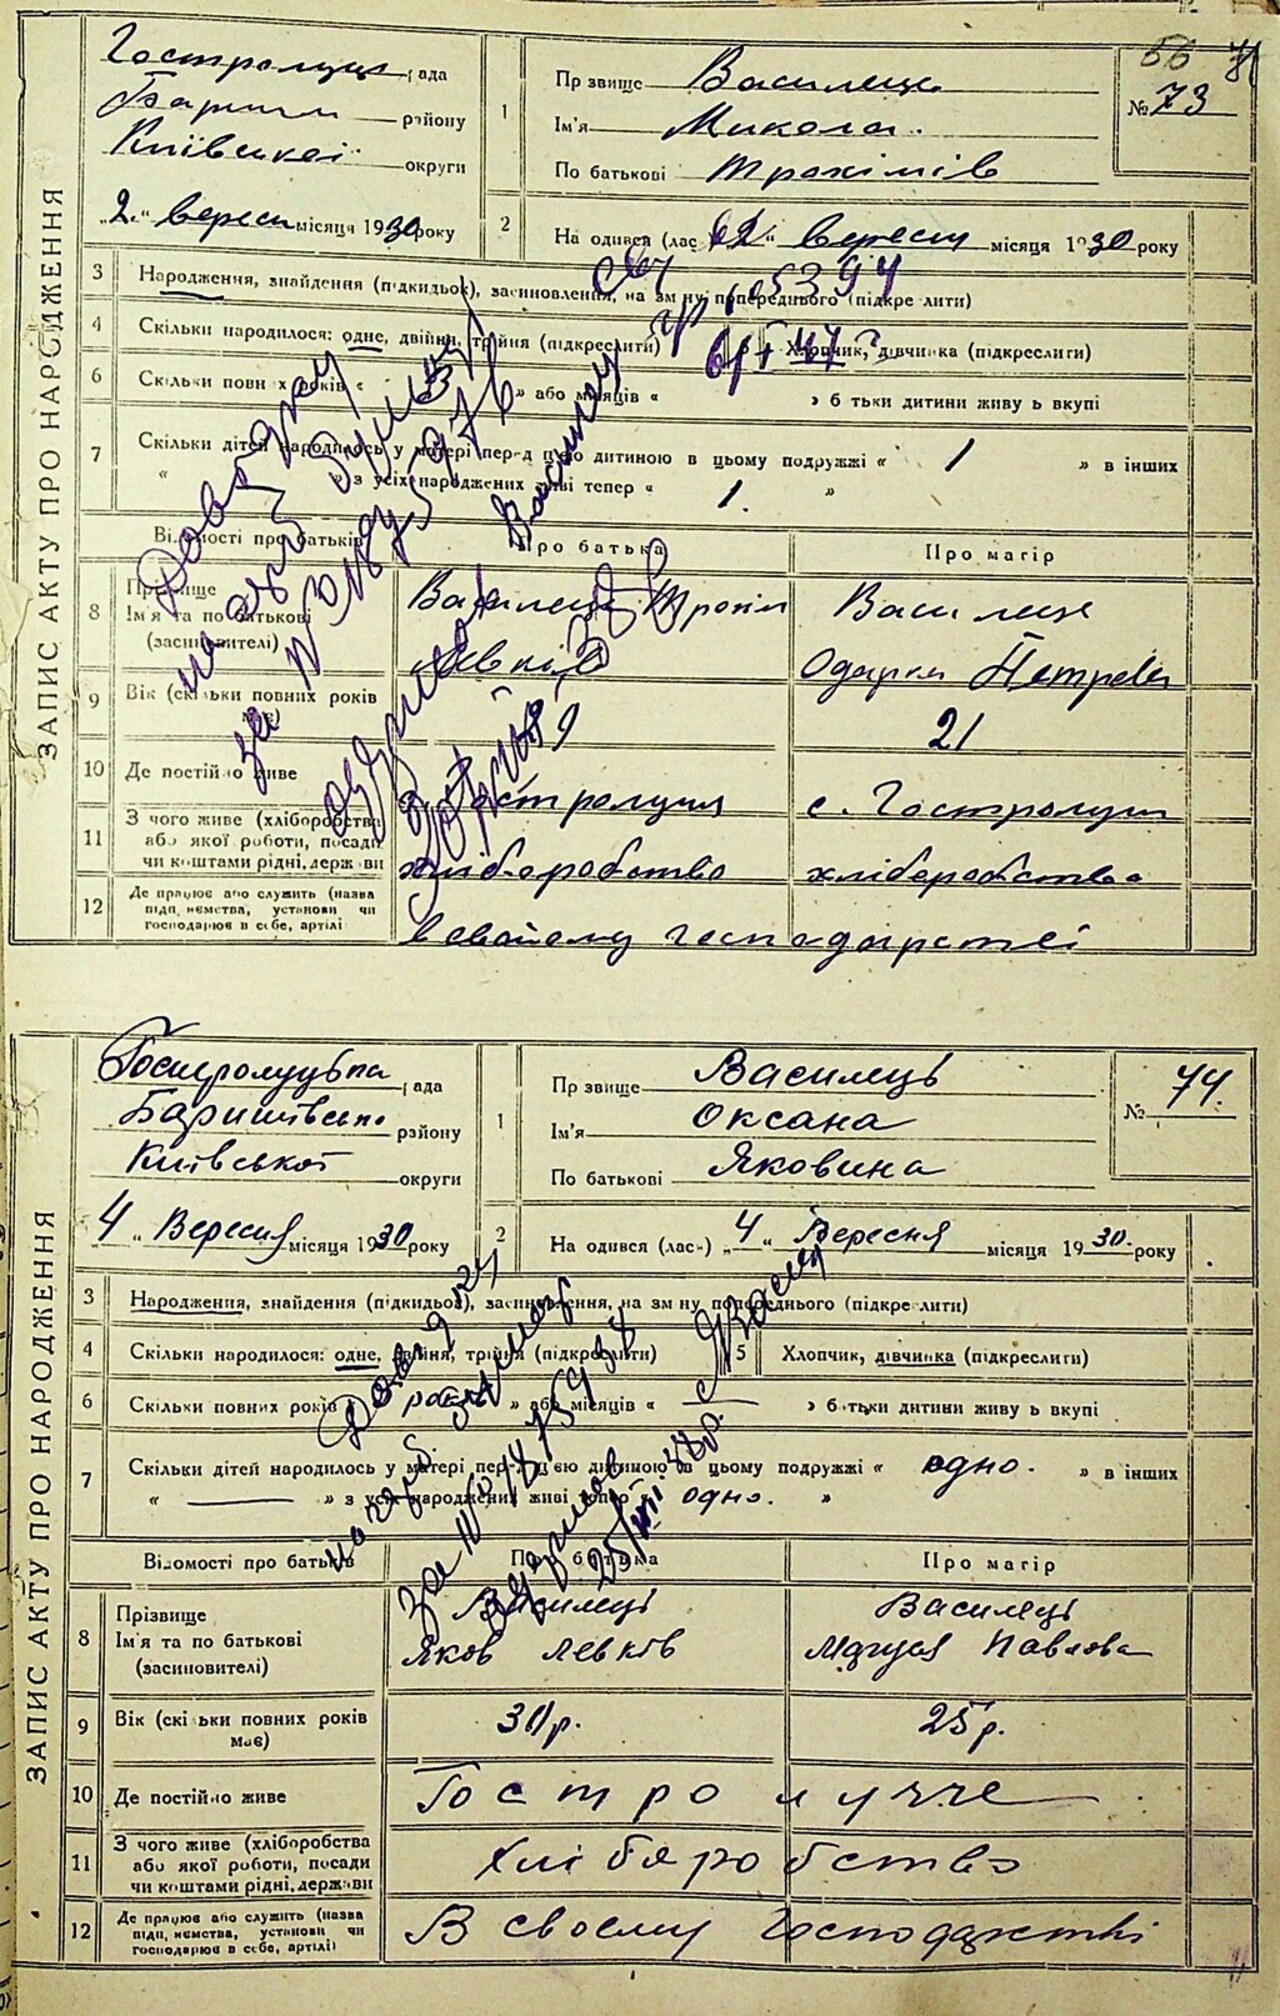 56
Гостролуцка рада
Бориш району
Київської округи
„2.“ вересн місяця 1930 року
ЗАПИС АКТУ ПРО НАРОДЖЕННЯ
1
Пр звище Василець
Ім'я Микола.
По батькові Трохимів
№ 73
2
На одився (лас 2“ вересн місяця 1930 року
3 Народження, знайдення (підкидьок), засиновлення, на зм ну попереднього (підкре лити)
4 Скільки народилося: одне, двійня, трійня (підкреслити) 5 Хлопчик, дівчинка (підкреслити)
6 Скільки повн х років « » або місяців « » б тьки дитини живу ь вкупі
7 Скільки дітей народилось у матері перед цією дитиною в цьому подружжі « 1 » в інших
« » з усіх народжених живі тепер « 1. »
Відомості про батьків Про батька Про матір
8 Прізвище
Ім'я та по батькові
(засиновителі)
Василець Трохим
Левків
Василець
Одарка Петрова
9 Вік (скільки повних років має) 21
10 Де постійно живе
с. Гостролуччя с. Гостролуччя
11 З чого живе (хліборобства
або якої роботи, посади
чи коштами рідні, держ ви
хліборобство хліборобство
12 Де працює або служить (назва
підп иємства, установи чи
господарює в себе, артілі
в своєму господарстві
Довідку
на
за
Василец
ЗАПИС АКТУ ПРО НАРОДЖЕННЯ
Гостролуцька рада
Баришівсько району
Київської округи
„4“ Вересня місяця 1930 року
1
Пр звище Василець
Ім'я Оксана
По батькові Яковина
№ 74.
2
На одився (лас-) „4“ Вересня місяця 1930. року
3 Народження, знайдення (підкидьок), засиновлення, на зм ну попереднього (підкре лити)
4 Скільки народилося: одне, двійня, трійня (підкреслити) 5 Хлопчик, дівчинка (підкреслити)
6 Скільки повних років « » або місяців « » б тьки дитини живу ь вкупі
7 Скільки дітей народилось у матері перед цією дитиною в цьому подружжі « одно. » в інших
« » з усіх народжених живі тепер « одно. »
Довідку
на
за №
одержав
25/VII 48р.
Відомості про батьків Про батька Про матір
8 Прізвище
Ім'я та по батькові
(засиновителі)
Василець
Яков Левків
Василець
Маруся Павлова
9 Вік (скі ьки повних років
має)
30р. 25р.
10 Де постійно живе
Гостролучче
11 З чого живе (хліборобства
або якої роботи, посади
чи коштами рідні, держави
Хлібяробство
12 Де працює або служить (назва
підп, иємства, установи чи
господарює в себе, артілі)
В своєму господарстві